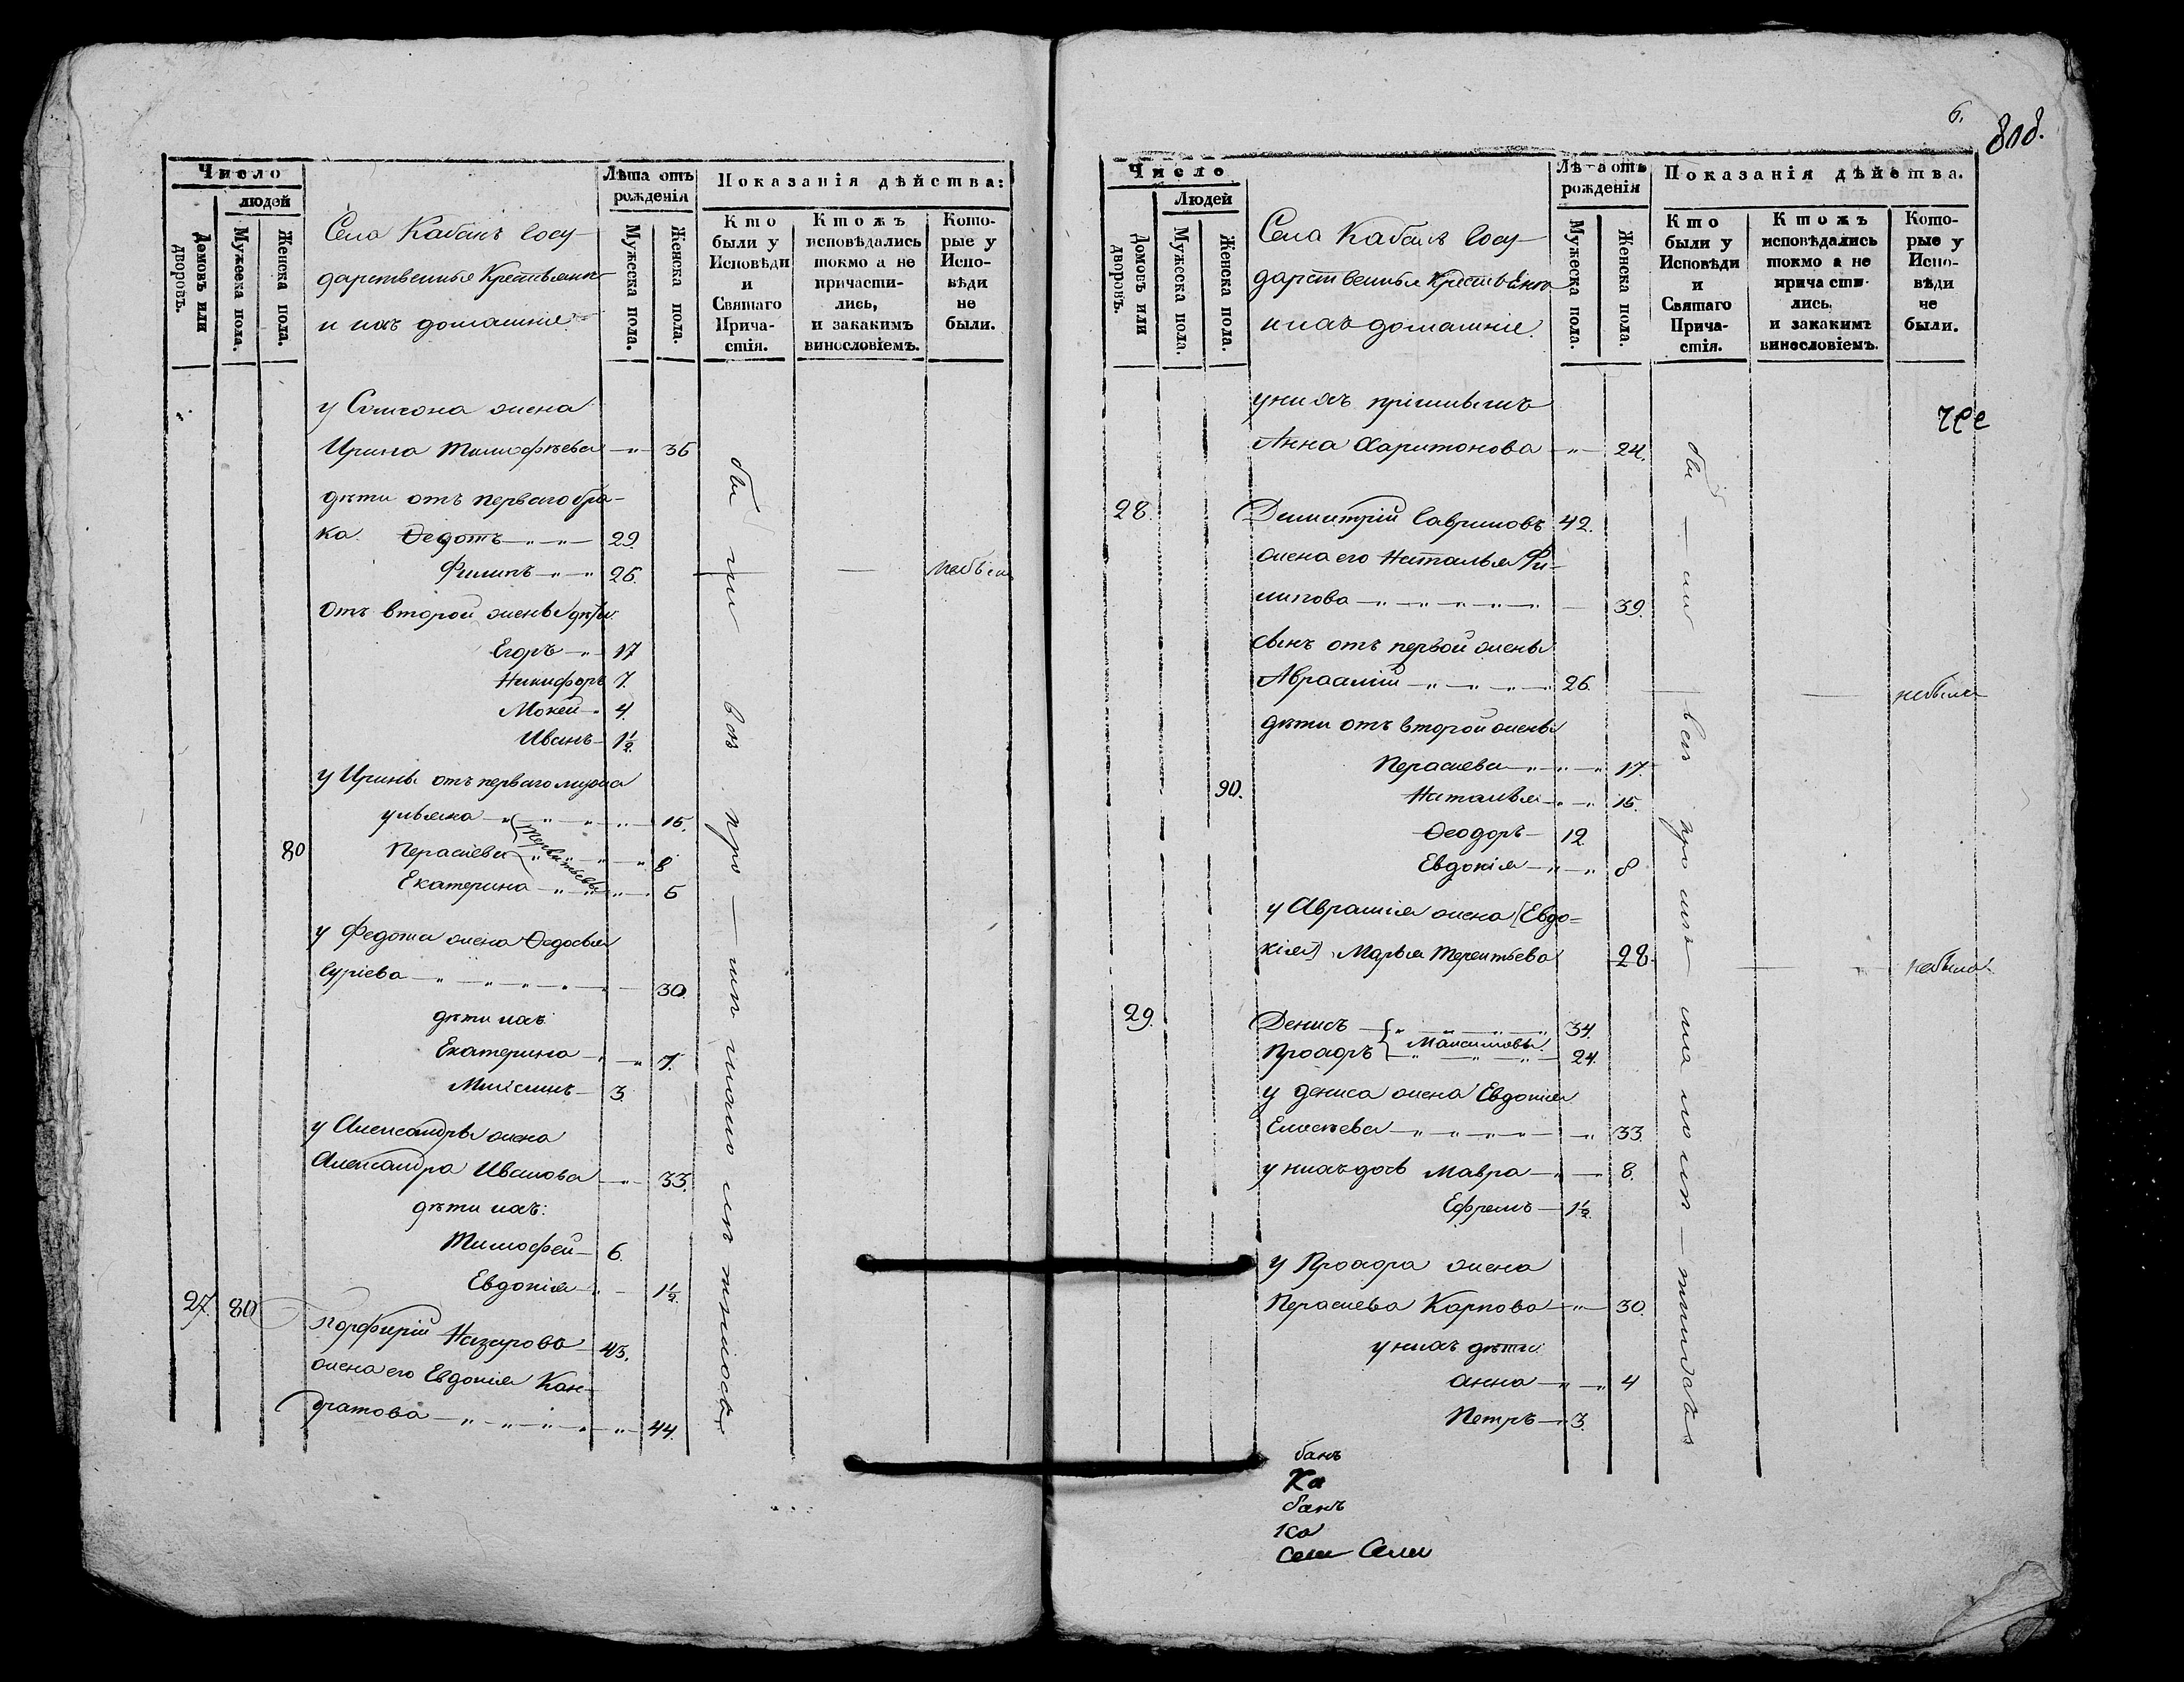 Число
людей
Домовъ или дворовъ.
Мужеска пола.
Женска пола.
Села Кабанъ Госу-
дарственныя Крестьяне
и ихъ домашнiе.
Лѣта отъ
рожденiя
Мужеска пола.
Женска пола.
Показанiя дѣйства:
Кто
были у
Исповѣди
и
Святаго
Прича-
стiя.
Ктожъ
исповѣдались
токмо а не
причасти-
лись,
и закакимъ
винословiемъ.
Кото-
рые у
Испо-
вѣди
не
были.
у Самсона жена
Ирина Тимофѣева 36
дѣти отъ перваго бра-
ка Ѳедотъ 29.
Филипъ 26. небылъ
отъ второй жены дѣти
Егоръ 17
Никифоръ 7.
Мокей 4.
Иванъ 1½
у Ирины отъ перваго мужа
Ульяна 15.
80 Параскева 8
Екатерина 5
у Федота жена Ѳедосья
Гурiева 30.
дѣти ихъ
Екатерина 7.
3.
у Александра жена
Александра Иванова 33.
дѣти ихъ:
Тимофей 6.
Евдокiя 1½.
27. 80 Порфирiй Назаровъ 43.
жена его Евдокiя Кон-
дратова 44.
бы ли всѣ про
6.
808.
Число
Людей
Домовъ или дворовъ.
Мужеска пола.
Женска пола.
Села Кабанъ Госу-
дарственныя Крестьяне
и ихъ домашнiе.
Лѣта отъ
рожденiя
Мужеска пола.
Женска пола.
Показанiя дѣйства.
Кто
были у
Исповѣди
и
Святаго
Прича-
стiя.
Ктожъ
исповѣдались
токмо а не
причасти-
лись,
и закакимъ
винословiемъ.
Кото-
рые у
Испо-
вѣди
не
были.
у нихъ
Анна Харитонова 24.
28. Димитрiй Гавриловъ 42.
жена его Наталья Фи-
липова 39.
сынъ отъ первой жены
Авраамiй 26. небылъ
дѣти отъ второй жены
Параскева 17.
90. Наталья 15.
Ѳеодоръ 12.
Евдокiя 8
у Аврамiя жена [Евдо-
кiя] Марья Терентьева 28 небыла
29. Денисъ 34.
Максимовы
Прохоръ 24.
у Дениса жена Евдокiя
Елисѣева 33.
у нихъ дочь Мавра 8.
Ефремъ 1½.
у Прохора жена
Параскева Карпова 30.
у нихъ дѣти
Анна 4
Петръ 3.
бы ли всѣ про
банъ
Ка
банъ
Ка
Села Села